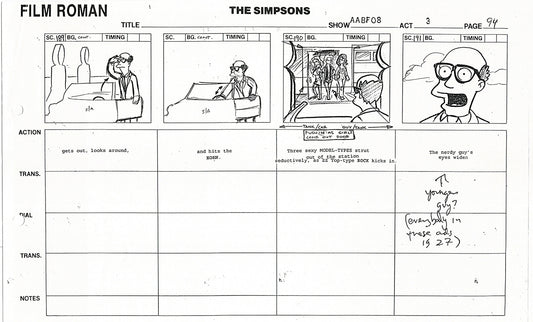 FILM ROMAN
THE SIMPSONS
TITLE
SHOW AABF08
ACT 3
PAGE 94
SC. 189 BG. CONT. TIMING
SC. BG. CONT. TIMING
SC. 190 BG. TIMING
SC. 191 BG. TIMING
S/A
S/A
GIRLS
COME OUT DOOR
ACTION
gets out, looks around,
and hits the
HORN.
Three sexy MODEL-TYPES strut
out of the station
seductively, as ZZ Top-type ROCK kicks in.
The nerdy guy's
eyes widen
TRANS.
younger
guy?
(everybody in
these ads
is 27)
DIAL
TRANS.
NOTES